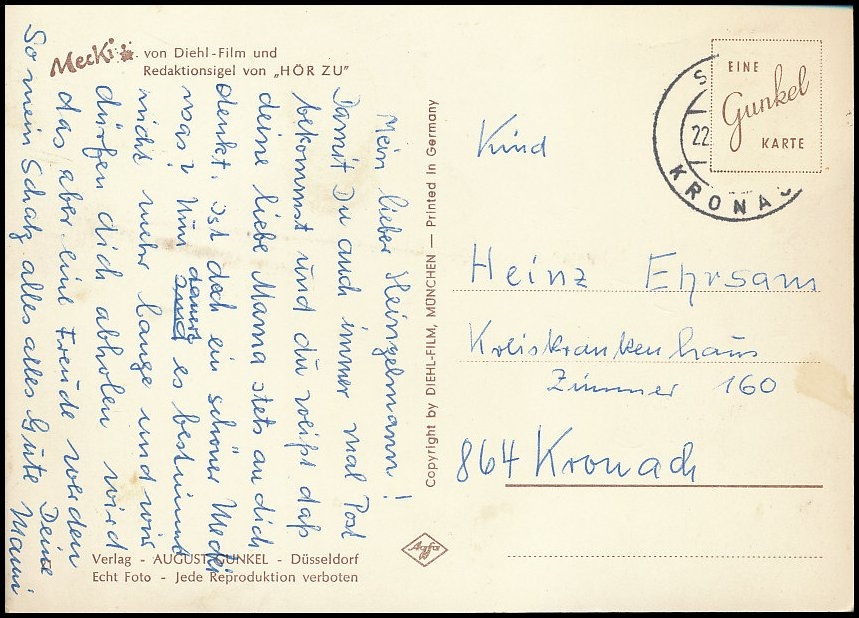 Mecki von Diehl-Film und
Redaktionsigel von „HÖR ZU"
Mein lieber Heinzelmann!
Damit Du auch immer mal Post
bekommst und du weißt daß
deine liebe Mama stets an dich
denkt. Ist doch ein schöner Mecki
was? Nun dauert es bestimmt
nicht mehr lange und wir
dürfen dich abholen wird
das aber eine Freude werden
So mein Schatz alles alles Gute Deine
Mami
Verlag - AUGUST GUNKEL - Düsseldorf
Echt Foto - Jede Reproduktion verboten
Copyright by DIEHL-FILM, MÜNCHEN — Printed in Germany
Agfa
EINE
Gunkel
KARTE
22
KRONAC
Kind
Heinz Ehrsam
Kreiskrankenhaus
Zimmer 160
864 Kronach